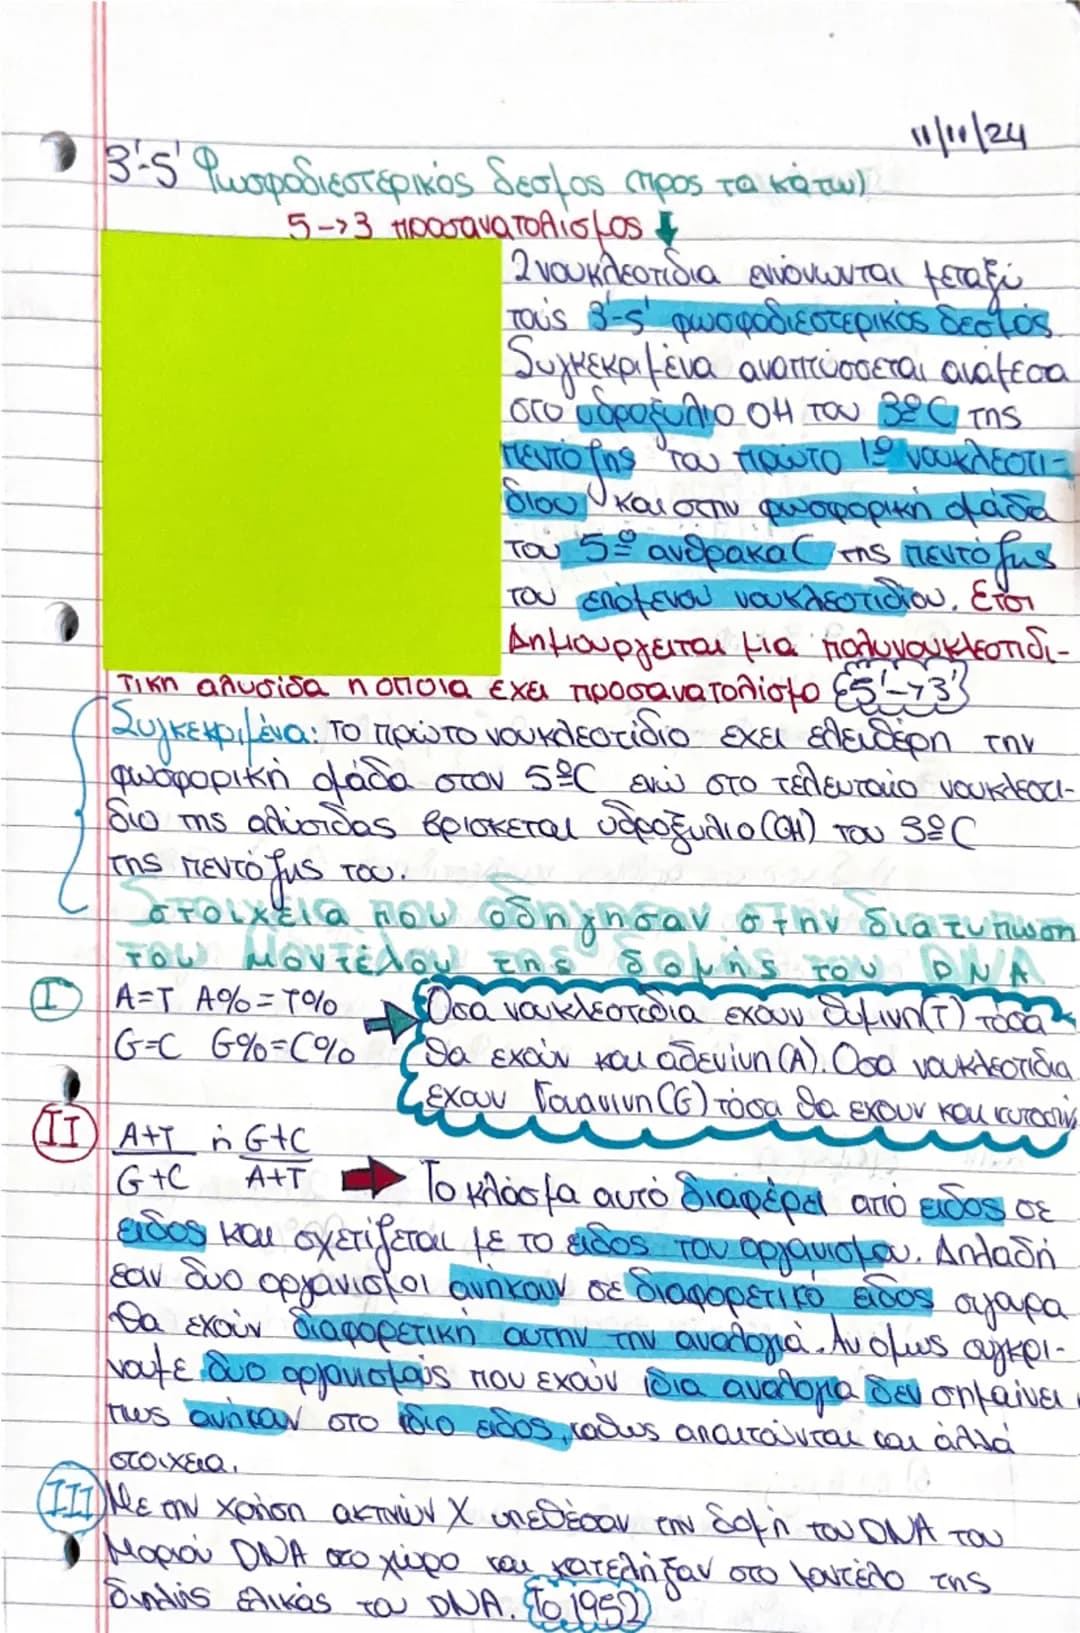 11/11/24
3'-5' Φωσφοδιεστερικός δεσμος (προς τα κάτω)
5->3 προσανατολισμος ↓
2 νουκλεοτιδια ενώνωνται μεταξύ
τούς 3'-5' φωσφοδιεστερικός δεσμός
Συγκεκριμένα αναπτύσσεται ανάμεσα
στο υδροξυλιο ΟΗ του 3º C της
πεντόζης του πρώτο 1º νουκλεοτι-
διου και στην φωσφορική ομάδα
του 5º ανθρακα C της πεντόζης
του επόμενου νουκλεοτιδίου. Ετσι
Δημιουργειται μια πολυνουκλεοτιδι-
τικη αλυσίδα η οποια εχει προσανατολισμο 5'->3'
Συγκεκριμένα: το πρώτο νουκλεοτίδιο εχει ελευθέρη την
φωσφορική ομάδα στον 5º C ενώ στο τελευταίο νουκλεοτι-
διο της αλύσιδας βρισκεται υδροξυλιο (ΟΗ) του 3º C
της πεντόζης του.
στοιχεία που οδηγησαν στην διατυπωση
του Μοντέλου της δομής του DNA
I A=T A%=T%
G=C G%=C%
→ Οσα νουκλεοτιδια εχουν Θυμινη(Τ) τόσα
θα εχούν και αδενίνη (Α). Οσα νουκλεοτιδια
εχουν Γουανινη (G) τόσα θα εχουν και κυτοσίν
II A+T ή G+C
G+C A+T → Το κλάσμα αυτό διαφέρει από ειδος σε
ειδος και σχετίζεται με το ειδος του οργανισμου. Δηλαδή
εαν δυο οργανισμοι ανηκουν σε διαφορετικό ειδος σιγαρα
θα εχούν διαφορετική αυτην την αναλογιά. Αν ομως συγκρι-
ναμε δυο οργανισμούς που εχούν ίδια αναλογια δεν σημαίνει
πως ανήκαν στο ίδιο ειδος, καθως απαιτούνται και άλλα
στοιχεια.
III Με την χρήση ακτινών Χ υπεθέσαν την δομή του DNA του
Μοριού DNA στο χώρο και κατεληξαν στο μοντέλο της
διπλής έλικας του DNA. Το 1952